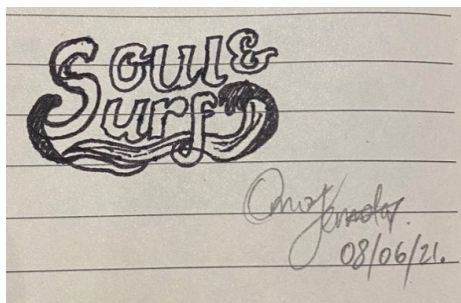 Soul &
Surf
08/06/21.